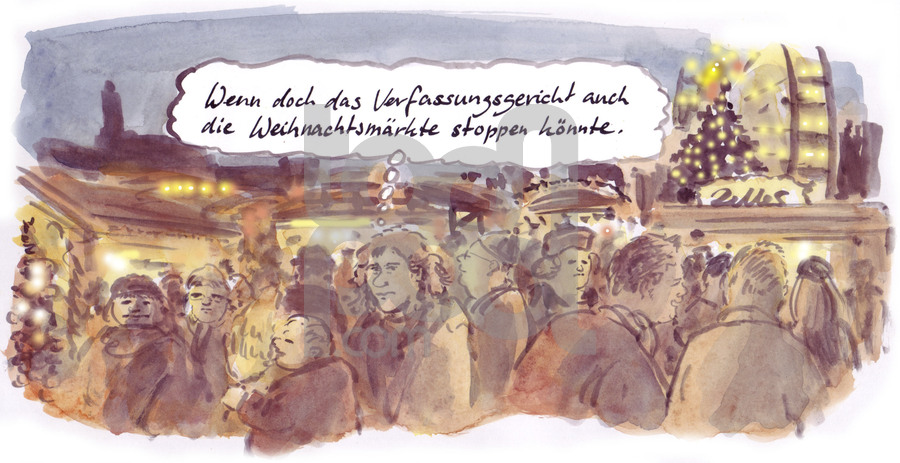 Wenn doch das Verfassungsgericht auch
die Weihnachtsmärkte stoppen könnte.
toon
pool
.com